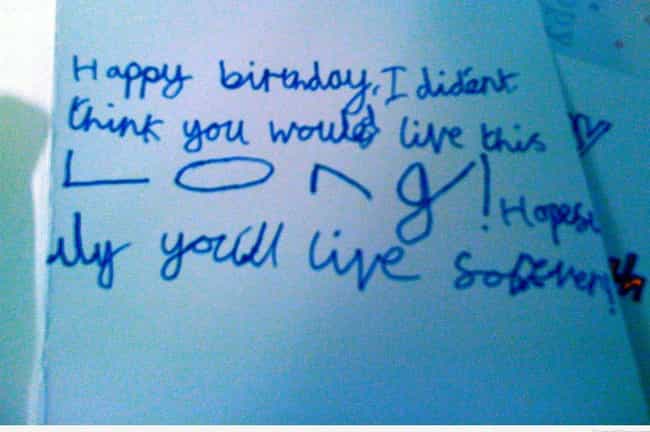 Happy birthday, I dident
think you would live this
LONg! Hopesu
lly you'll live